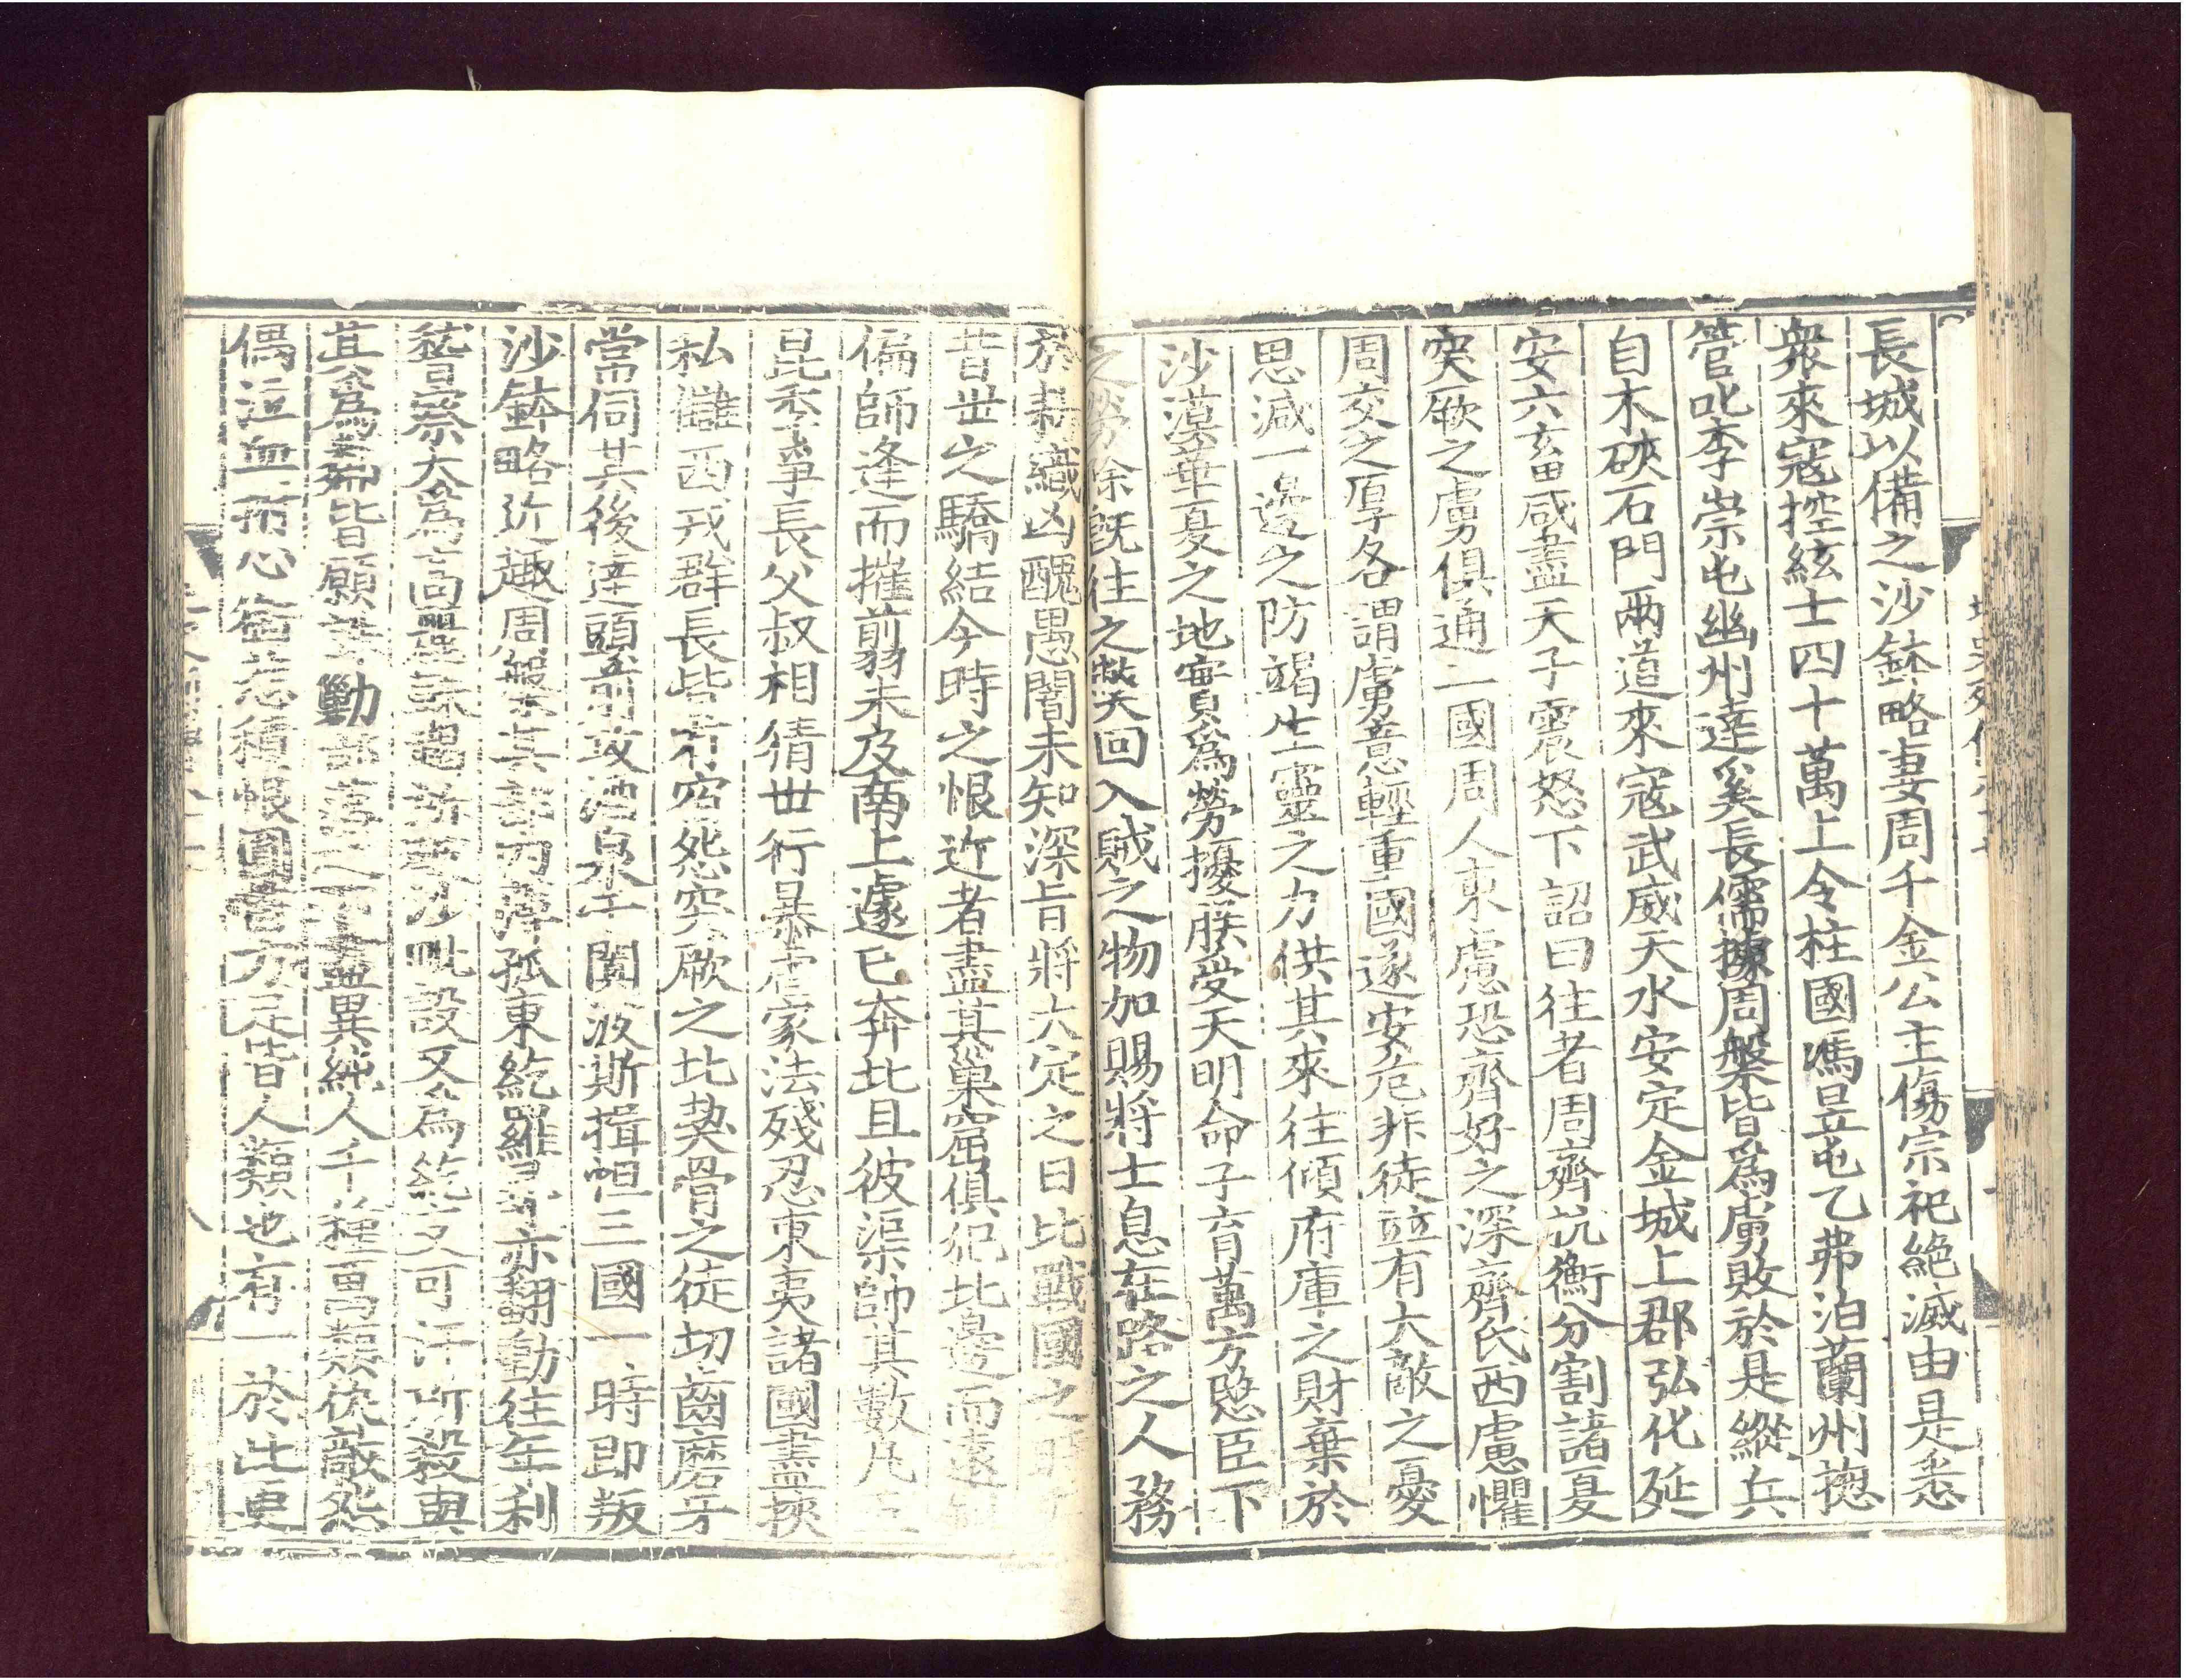 長城以備之沙鉢略妻周千金公主傷宗祀絕滅由是悉
衆來寇控絃士四十萬上令柱國馮昱屯乙弗泊蘭州摠
管叱李崇屯幽州達奚長儒據周槃皆爲虜敗於是縱兵
自木硤石門兩道來寇武威天水安定金城上郡弘化延
安六畜咸盡天子震怒下詔曰往者周齊抗衡分割諸夏
突厥之虜俱通二國周人東慮恐齊好之深齊氏西慮懼
周交之厚各謂虜意輕重國遂安危非徒竝有大敵之憂
思減一邊之防竭生靈之力供其來往傾府庫之財棄於
沙漠華夏之地實爲勞擾朕受天明命子育萬方愍臣下
之勞除旣往之弊回入賊之物加賜將士息在路之人務
於耕織凶醜愚闇未知深旨將大定之日比戰國之時
昔世之驕結今時之恨近者盡其巢窟俱犯北邊而遠
偏師逢而摧翦未及南上遽已奔北且彼渠帥其數凡
昆季爭長父叔相猜世行暴虐家法殘忍東夷諸國盡挾
私讎西戎群長皆有宿怨突厥之北契骨之徒切齒磨牙
常伺其後達頭前攻酒泉于闐波斯揖怛三國一時即叛
沙鉢略近趣周槃其部內薄孤東紇羅尋亦翻動往年利
稽察大爲高麗靺鞨所破沙毗設又爲紇支可汗所殺與
其爲鄰皆願誅勦部落之下盡異純人千種萬類仇敵怨
偶泣血拊心銜悲積恨圓首方足皆人類也有一於此更